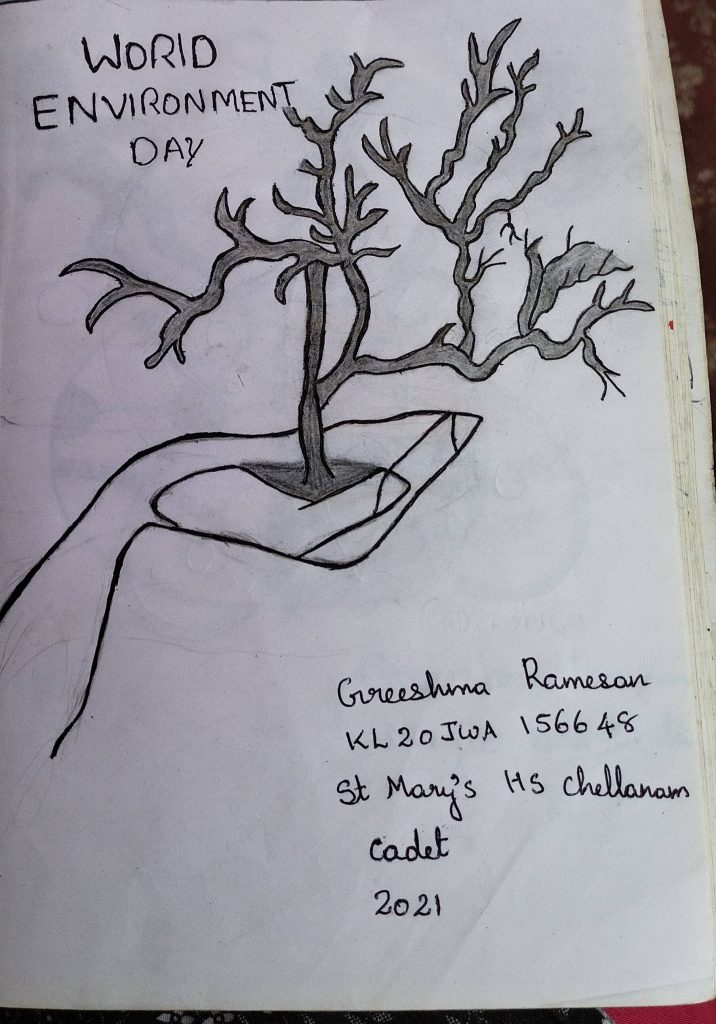 WORLD
ENVIRONMENT
DAY
Greeshma Ramesan
KL20JWA 156648
St Mary's HS Chellanam
Cadet
2021